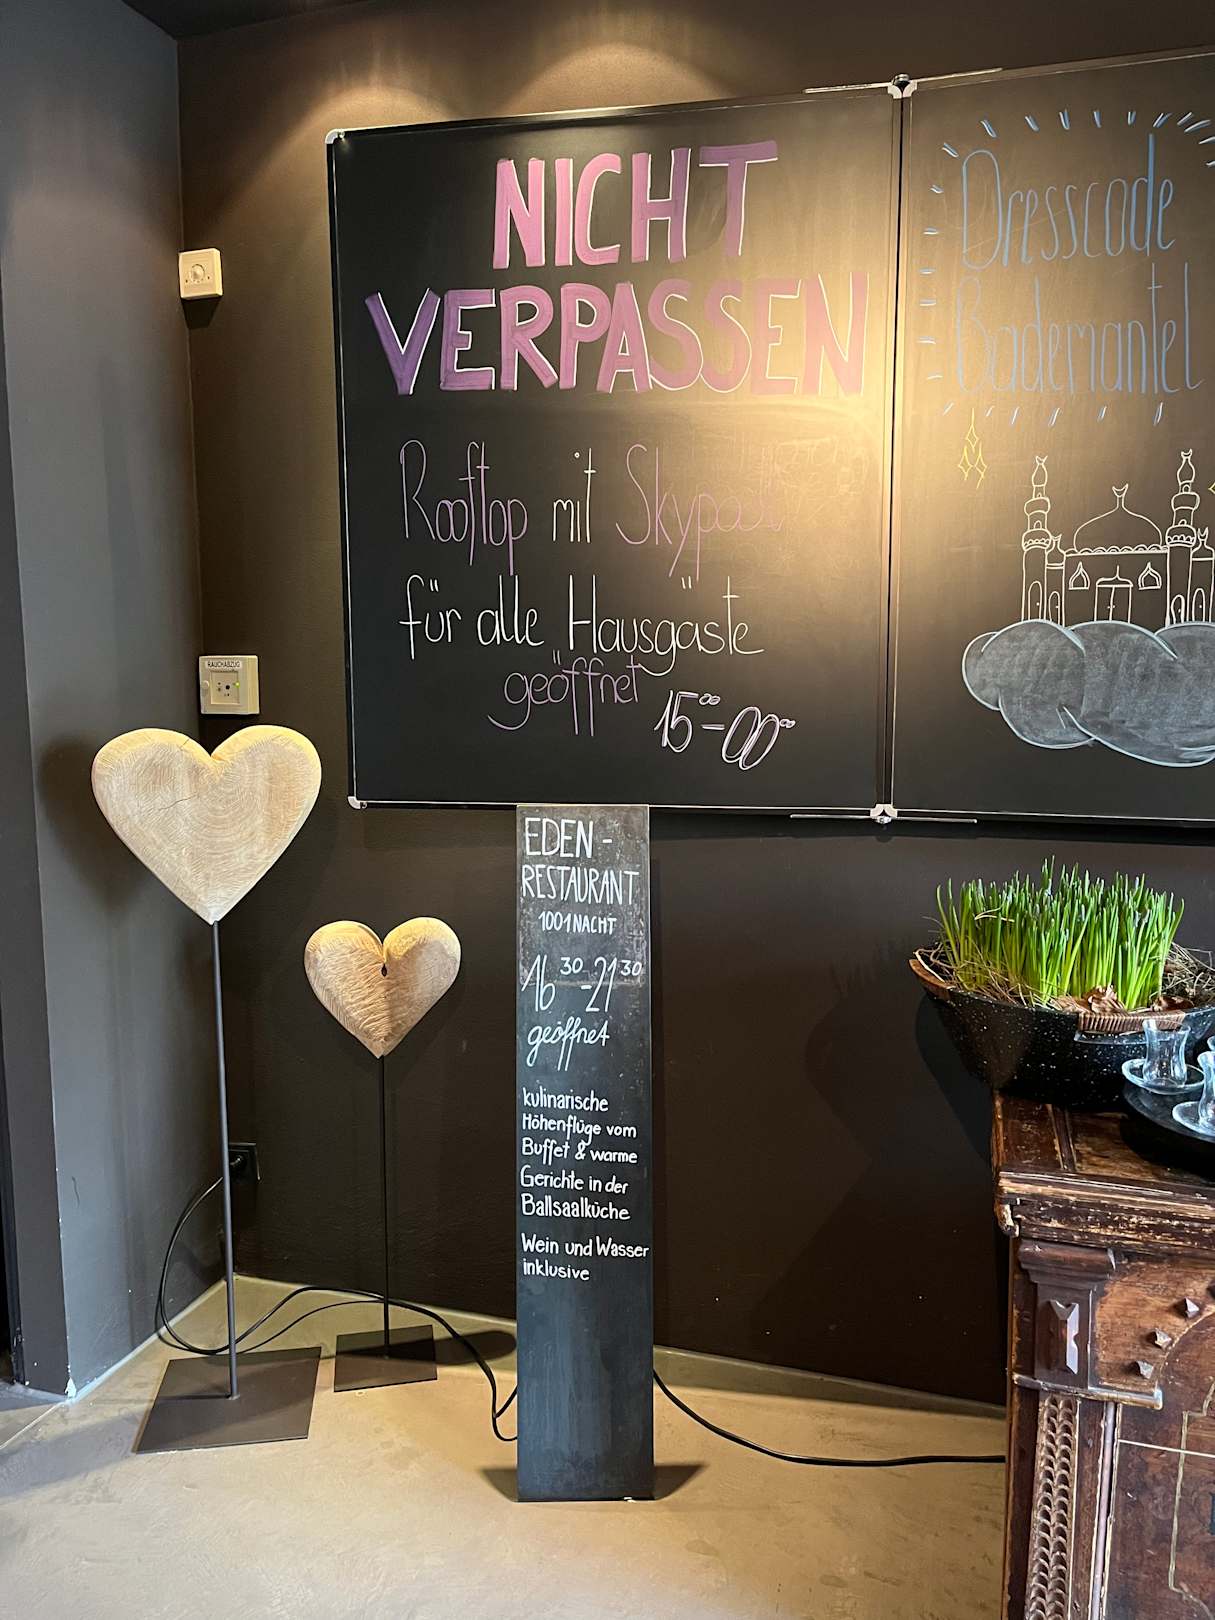 NICHT
VERPASSEN
Rooftop mit Skypool
für alle Hausgäste
geöffnet
15⁰⁰-00⁰⁰
Dresscode
Bademantel
RAUCHABZUG
EDEN-
RESTAURANT
1001 NACHT
16³⁰-21³⁰
geöffnet
kulinarische
Höhenflüge vom
Buffet & warme
Gerichte in der
Ballsaalküche
Wein und Wasser
inklusive